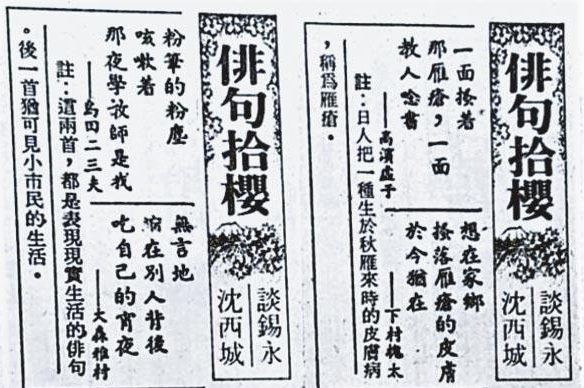 俳句拾櫻
談錫永
沈西城
一面搔着
那雁瘡,一面
教人唸書
——高濱虛子
想在家鄉
搔落雁瘡的皮膚
於今猶在
——下村槐太
註:日人把一種生於秋雁來時的皮膚病
,稱爲雁瘡。
俳句拾櫻
談錫永
沈西城
粉筆的粉塵
咳嗽着
那夜學敎師是我
——島田二三夫
無言地
在別人背後
吃自己的宵夜
——大森雅村
註:這兩首,都是表現現實生活的俳句
。後一首猶可見小市民的生活。